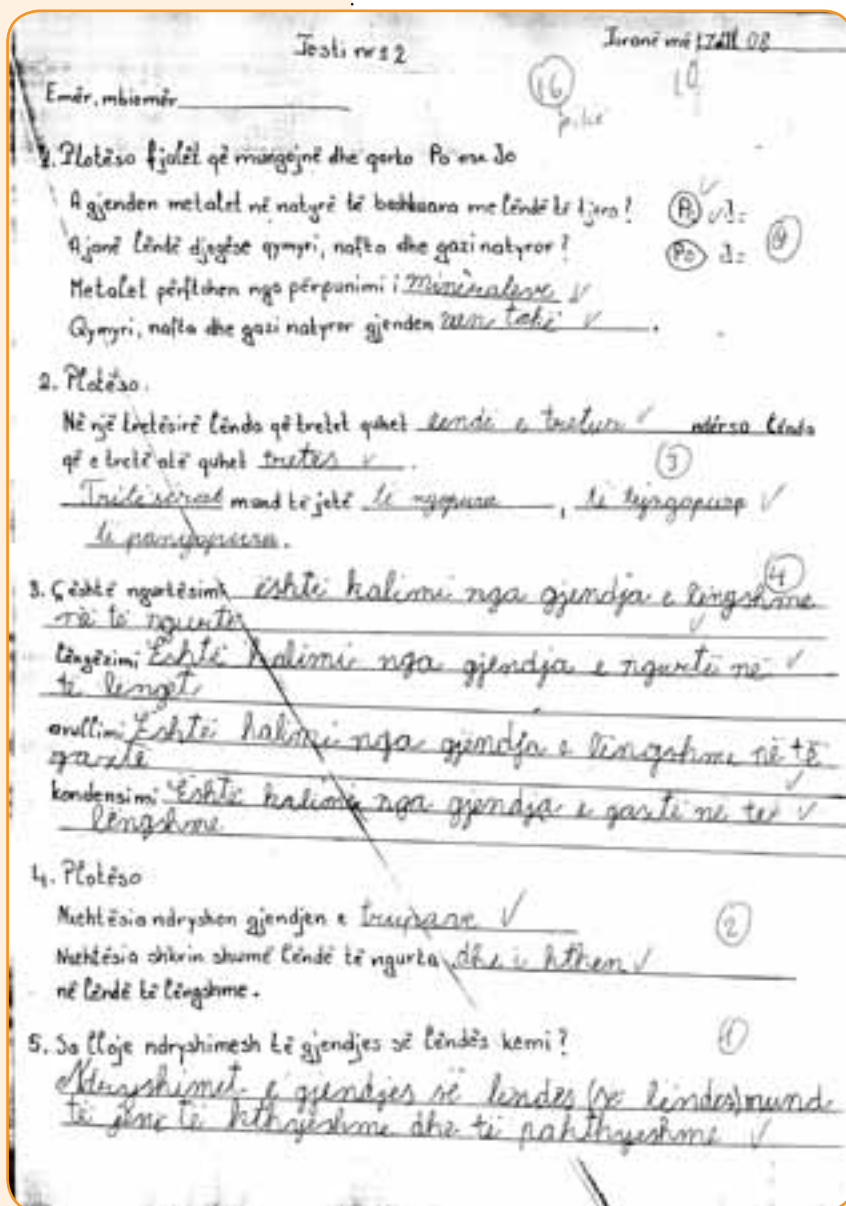 Testi nr 2
Tiranë më 17 III 08
Emër, mbiemër
16
pikë
10
1. Plotëso fjalët që mungojnë dhe qarko Po ose Jo
A gjenden metalet në natyrë të bashkuara me lëndë të tjera? Po Jo
A janë lëndë djegëse qymyri, nafta dhe gazi natyror? Po Jo
Metalet përftohen nga përpunimi i Mineraleve
Qymyri, nafta dhe gazi natyror gjenden nën tokë.
2. Plotëso.
Në një tretësirë lënda që tretet quhet lëndë e tretur ndërsa lënda
që e tretë atë quhet tretës.
3
mund të jetë të ngopura,
të pangopura.
3. Çështë ngurtësimi është kalimi nga gjendja e lëngshme
4
në të ngurtë
lëngëzimi Është kalimi nga gjendja e ngurtë në
të lënget
avullimi Është kalimi nga gjendja e lëngshme në të
gaztë
kondensimi Është kalimi nga gjendja e gaztë në të
lëngshme
4. Plotëso
Nxehtësia ndryshon gjendjen e trupave
2
Nxehtësia shkrin shumë lëndë të ngurta dhe i kthen
në lëndë të lëngshme.
5. Sa lloje ndryshimesh të gjendjes së lëndës kemi?
1
Ndryshimet e gjendjes së lëndës (së lëndës) mund
të jenë të kthyeshme dhe të pakthyeshme